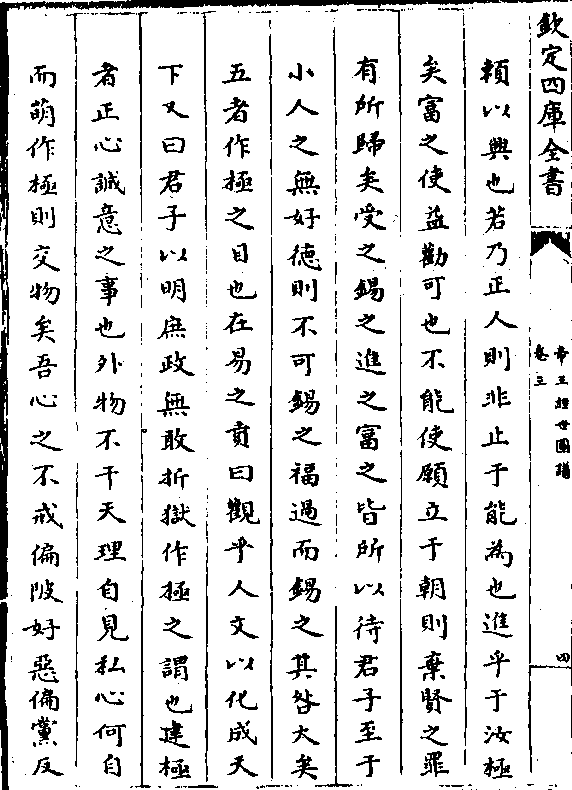 欽定四庫全書
帝王經世圖譜
卷三
四
賴以興也若乃正人則非止于能為也進乎于汝極
矣富之使益勸可也不能使願立于朝則棄賢之罪
有所歸矣受之錫之進之富之皆所以待君子至于
小人之無好德則不可錫之福過而錫之其咎大矣
五者作極之目也在易之賁曰觀乎人文以化成天
下又曰君子以明庶政無敢折獄作極之謂也建極
者正心誠意之事也外物不干天理自見私心何自
而萌作極則交物矣吾心之不戒偏陂好惡偏黨反